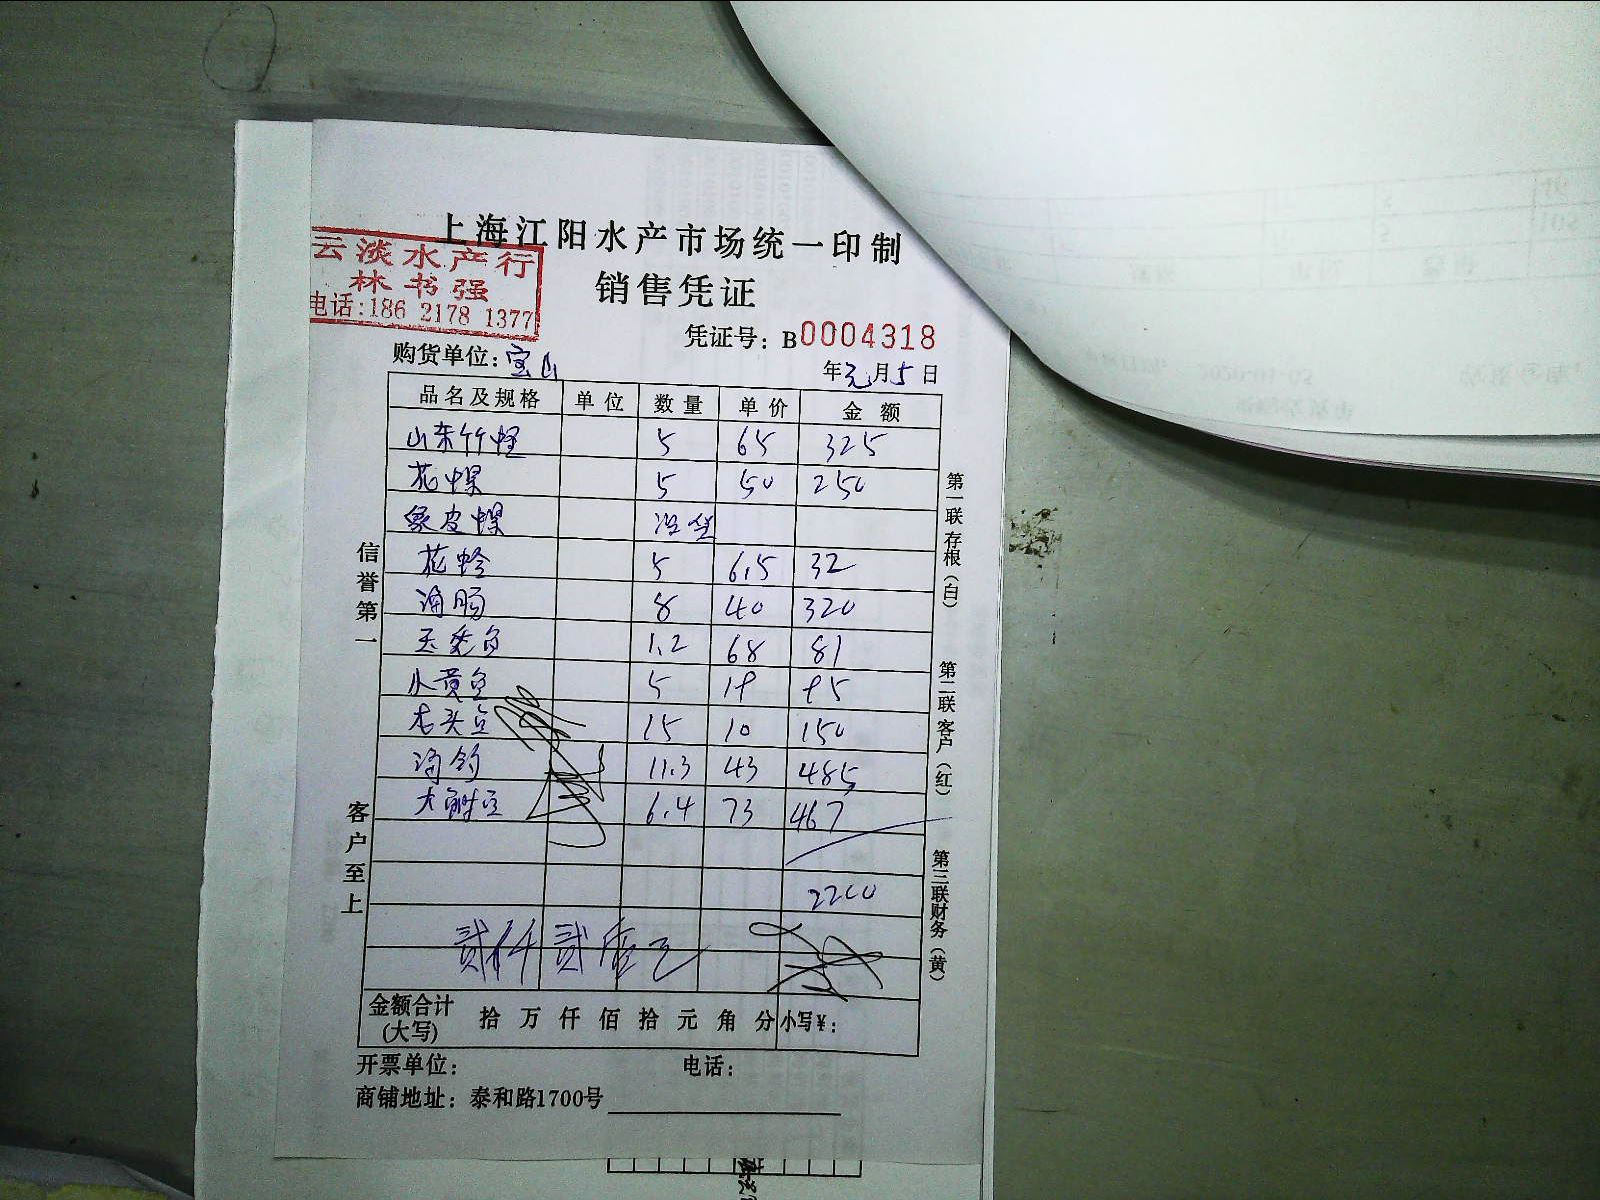 上海江阳水产市场统一印制
云淡水产行
林书强
电话:186 2178 1377
销售凭证
凭证号: B0004318
购货单位:宝山
年元月5日
品名及规格 单位 数量 单价 金额
山东竹蛏 5 65 325
花螺 5 50 250
象皮螺
花蛤 5 6.5 32
海肠 8 40 320
玉秃鱼 1.2 68 81
小黄鱼 5 19 95
老头鱼 15 10 150
海钓 11.3 43 485
大鲋鱼 6.4 73 467
2200
贰仟贰佰元
金额合计(大写) 拾 万 仟 佰 拾 元 角 分 小写¥:
开票单位: 电话:
商铺地址: 泰和路1700号
信誉第一
客户至上
第一联 存根(白)
第二联 客户(红)
第三联 财务(黄)
2020-01-05